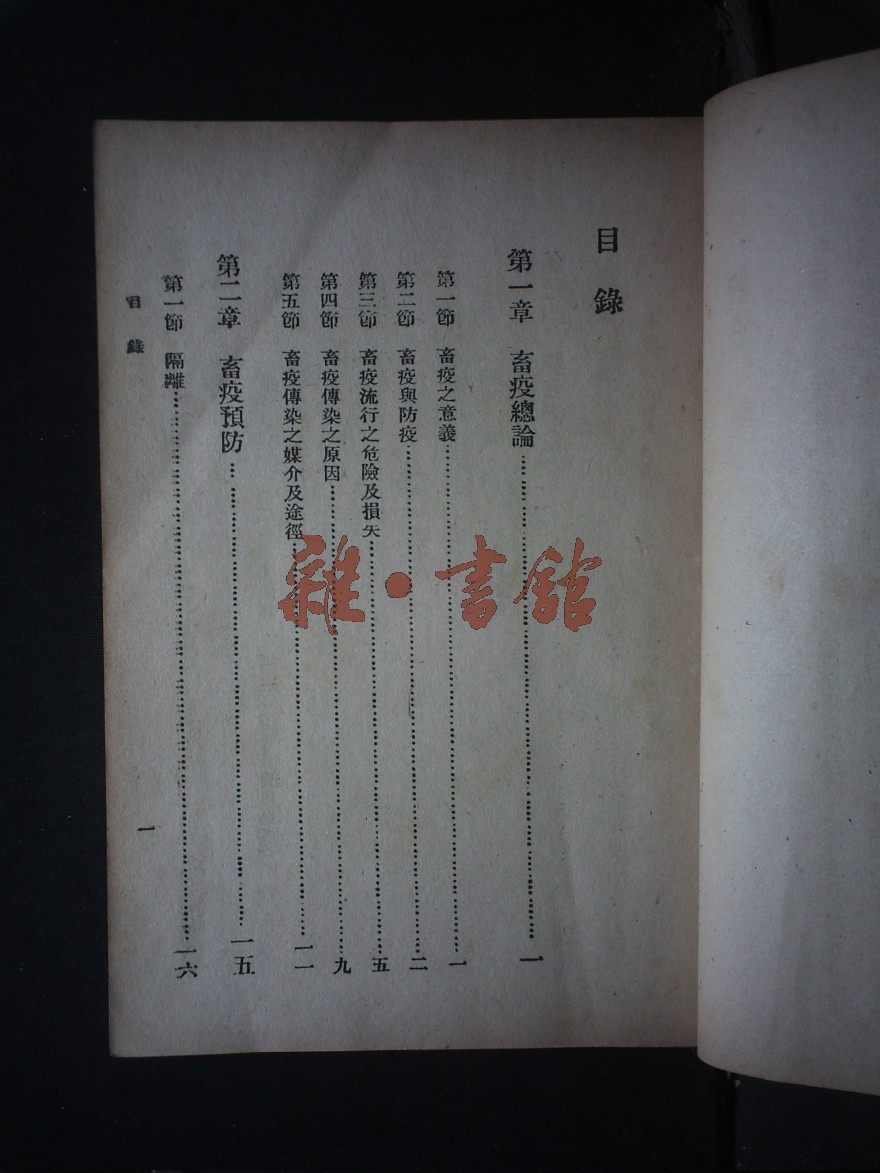 目錄
第一章 畜疫總論…………一
第一節 畜疫之意義…………一
第二節 畜疫與防疫…………二
第三節 畜疫流行之危險及損失…………五
第四節 畜疫傳染之原因…………九
第五節 畜疫傳染之媒介及途徑…………一一
第二章 畜疫預防…………一五
第一節 隔離…………一六
目錄 一
雜·書館